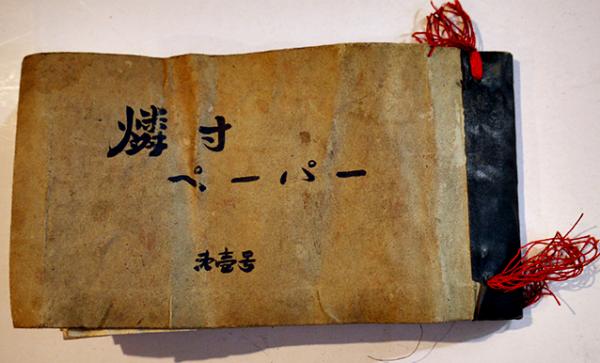 燐寸
ペーパー
㐧壹号